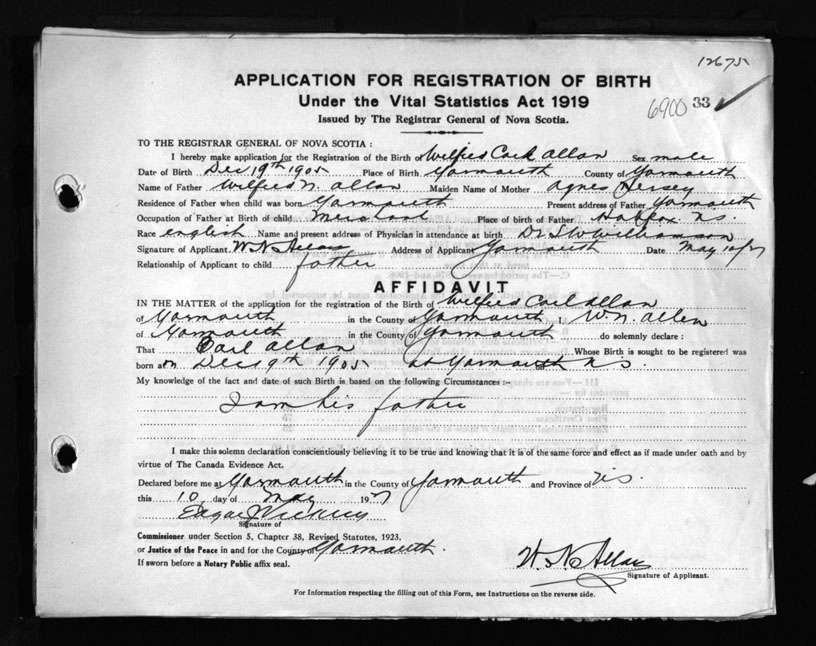 12675
APPLICATION FOR REGISTRATION OF BIRTH
Under the Vital Statistics Act 1919
6900 33
Issued by The Registrar General of Nova Scotia.
TO THE REGISTRAR GENERAL OF NOVA SCOTIA:
I hereby make application for the Registration of the Birth of Wilfred Carl Allan Sex male
Date of Birth Dec 19th 1905 Place of Birth Yarmouth County of Yarmouth
Name of Father Wilfred N. Allan Maiden Name of Mother Agnes Hersey
Residence of Father when child was born Yarmouth Present address of Father Yarmouth
Occupation of Father at Birth of child Merchant Place of birth of Father Halifax N.S.
Race English Name and present address of Physician in attendance at birth Dr S W Williamson
Signature of Applicant W N Allan Address of Applicant Yarmouth Date May 10/27
Relationship of Applicant to child father
AFFIDAVIT
IN THE MATTER of the application for the registration of the Birth of Wilfred Carl Allan
of Yarmouth in the County of Yarmouth, I W N Allen
of Yarmouth in the County of Yarmouth do solemnly declare:
That Carl Allan Whose Birth is sought to be registered was
born at on Dec 9th 1905 at Yarmouth N.S.
My knowledge of the fact and date of such Birth is based on the following Circumstances:-
I am his father
I make this solemn declaration conscientiously believing it to be true and knowing that it is of the same force and effect as if made under oath and by
virtue of The Canada Evidence Act.
Declared before me at Yarmouth in the County of Yarmouth and Province of N.S.
this 10 day of May 1927
Edgar J Vickery
Signature of
Commissioner under Section 5, Chapter 38, Revised Statutes, 1923.
or Justice of the Peace in and for the County of Yarmouth.
If sworn before a Notary Public affix seal.
W. N. Allan
Signature of Applicant.
For Information respecting the filling out of this Form, see Instructions on the reverse side.